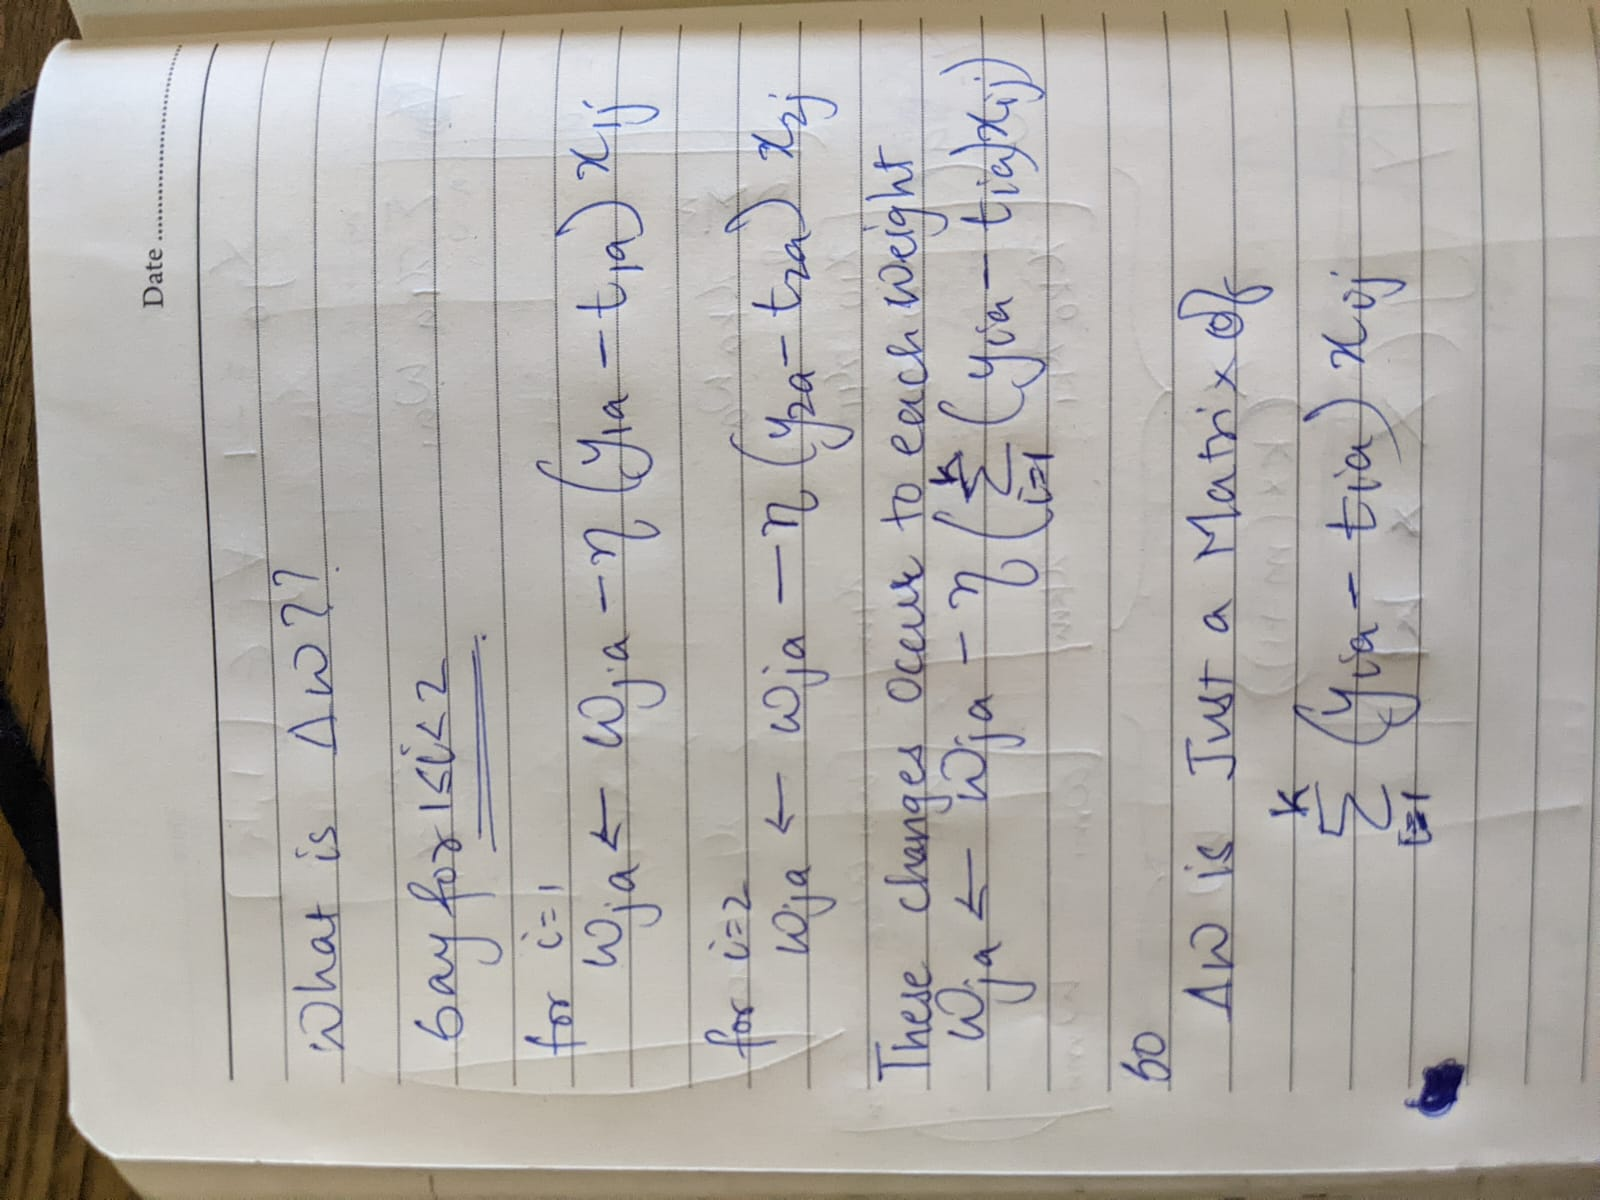 Date ....................
What is Δw??
Say for 1≤i≤2
for i=1
wja ← wja − η (y1a − t1a) x1j
for i=2
wja ← wja − η (y2a − t2a) x2j
These changes occur to each weight
wja ← wja − η (K∑i=1 (yia − tia)xij)
So
Δw is Just a Matrix of
K∑i=1 (yia − tia) xij